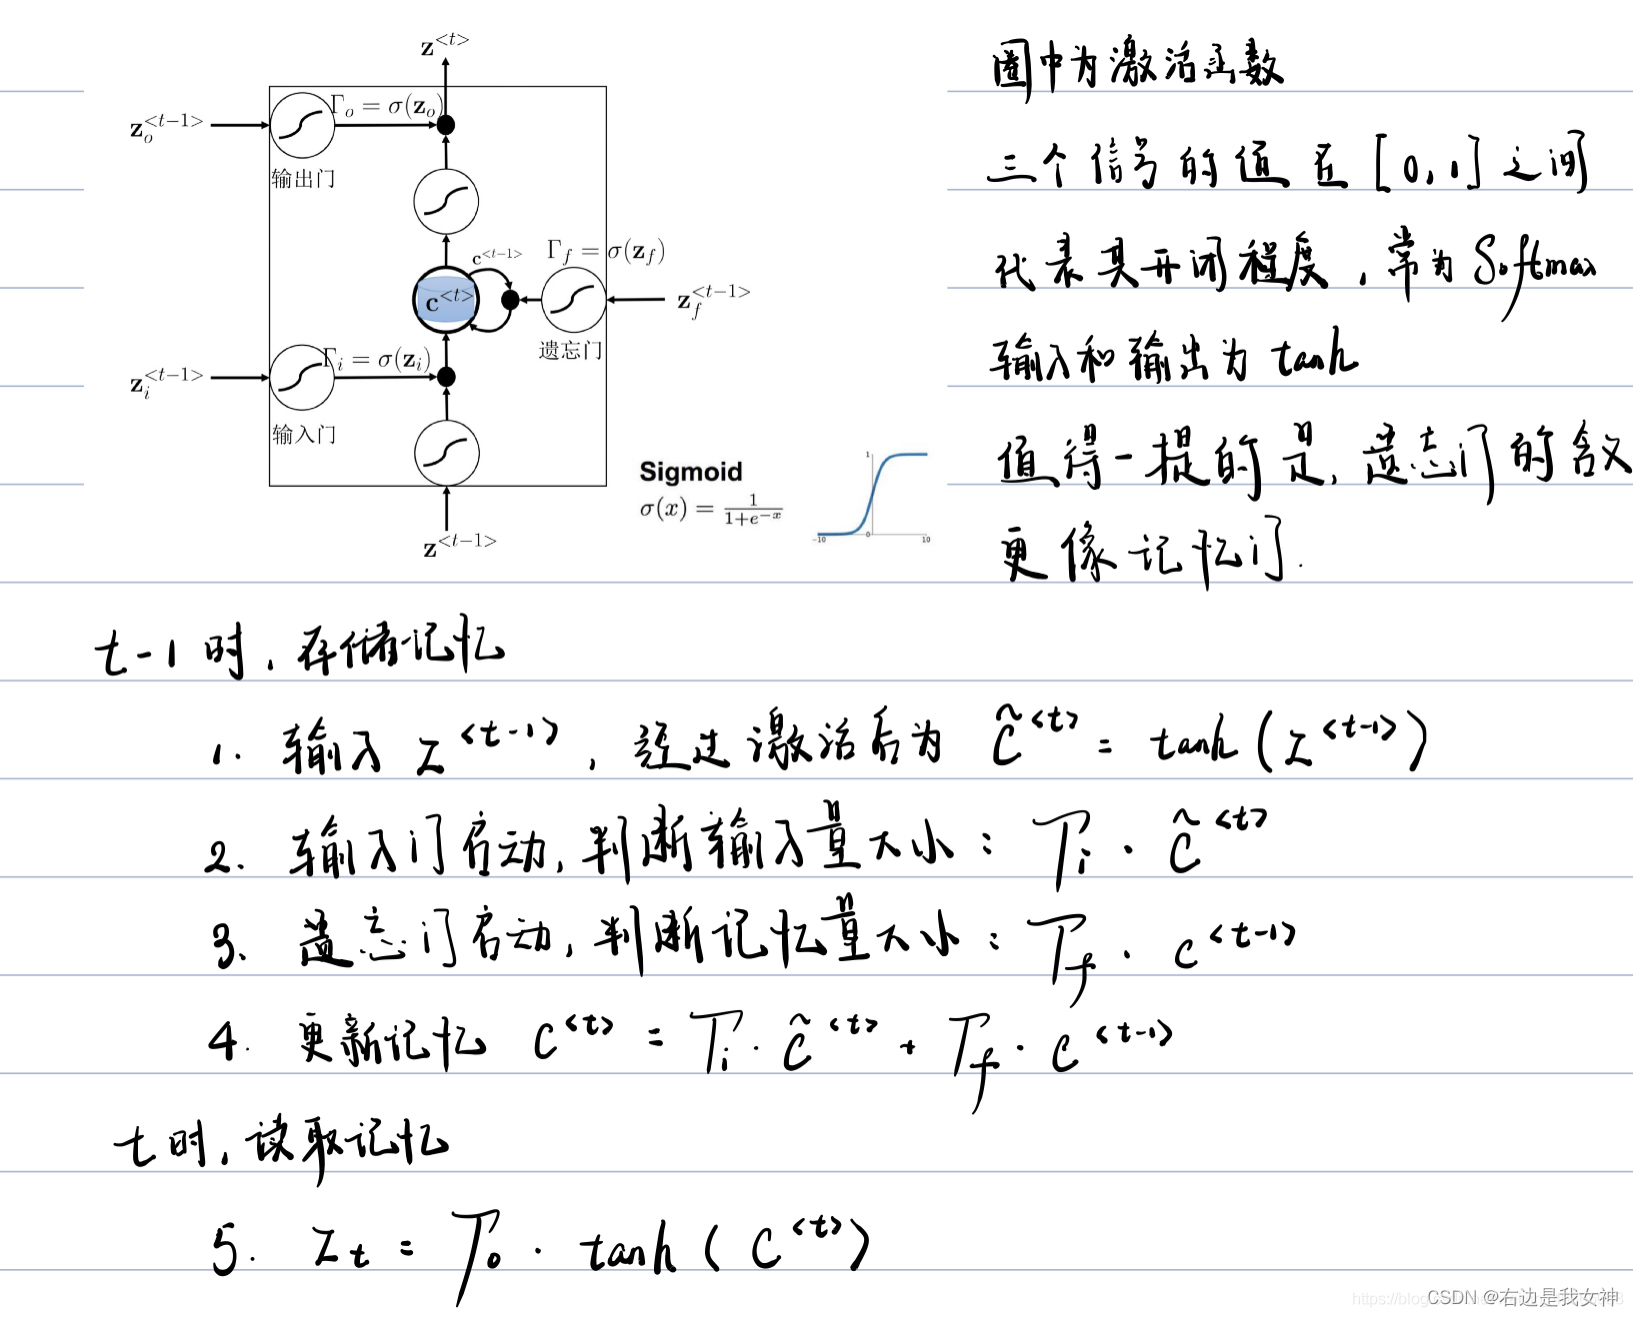 z^{<t>}
z_o^{<t-1>}
Γ_o = σ(z_o)
输出门
c^{<t-1>}
Γ_f = σ(z_f)
c^{<t>}
z_f^{<t-1>}
遗忘门
Γ_i = σ(z_i)
z_i^{<t-1>}
输入门
z^{<t-1>}
Sigmoid
σ(x) = \frac{1}{1+e^{-x}}
1
-10 0 10
圈中为激活函数
三个信号的值在[0,1]之间
代表其开闭程度,常为Softmax
输入和输出为tanh
值得一提的是,遗忘门的含义
更像记忆门.
t-1时,存储记忆
1. 输入 z^{<t-1>}, 经过激活后为 \tilde{c}^{<t>} = tanh(z^{<t-1>})
2. 输入门启动,判断输入量大小: Γ_i · \tilde{c}^{<t>}
3. 遗忘门启动,判断记忆量大小: Γ_f · c^{<t-1>}
4. 更新记忆 c^{<t>} = Γ_i · \tilde{c}^{<t>} + Γ_f · c^{<t-1>}
t时,读取记忆
5. z_t = Γ_o · tanh(c^{<t>})
CSDN @右边是我女神